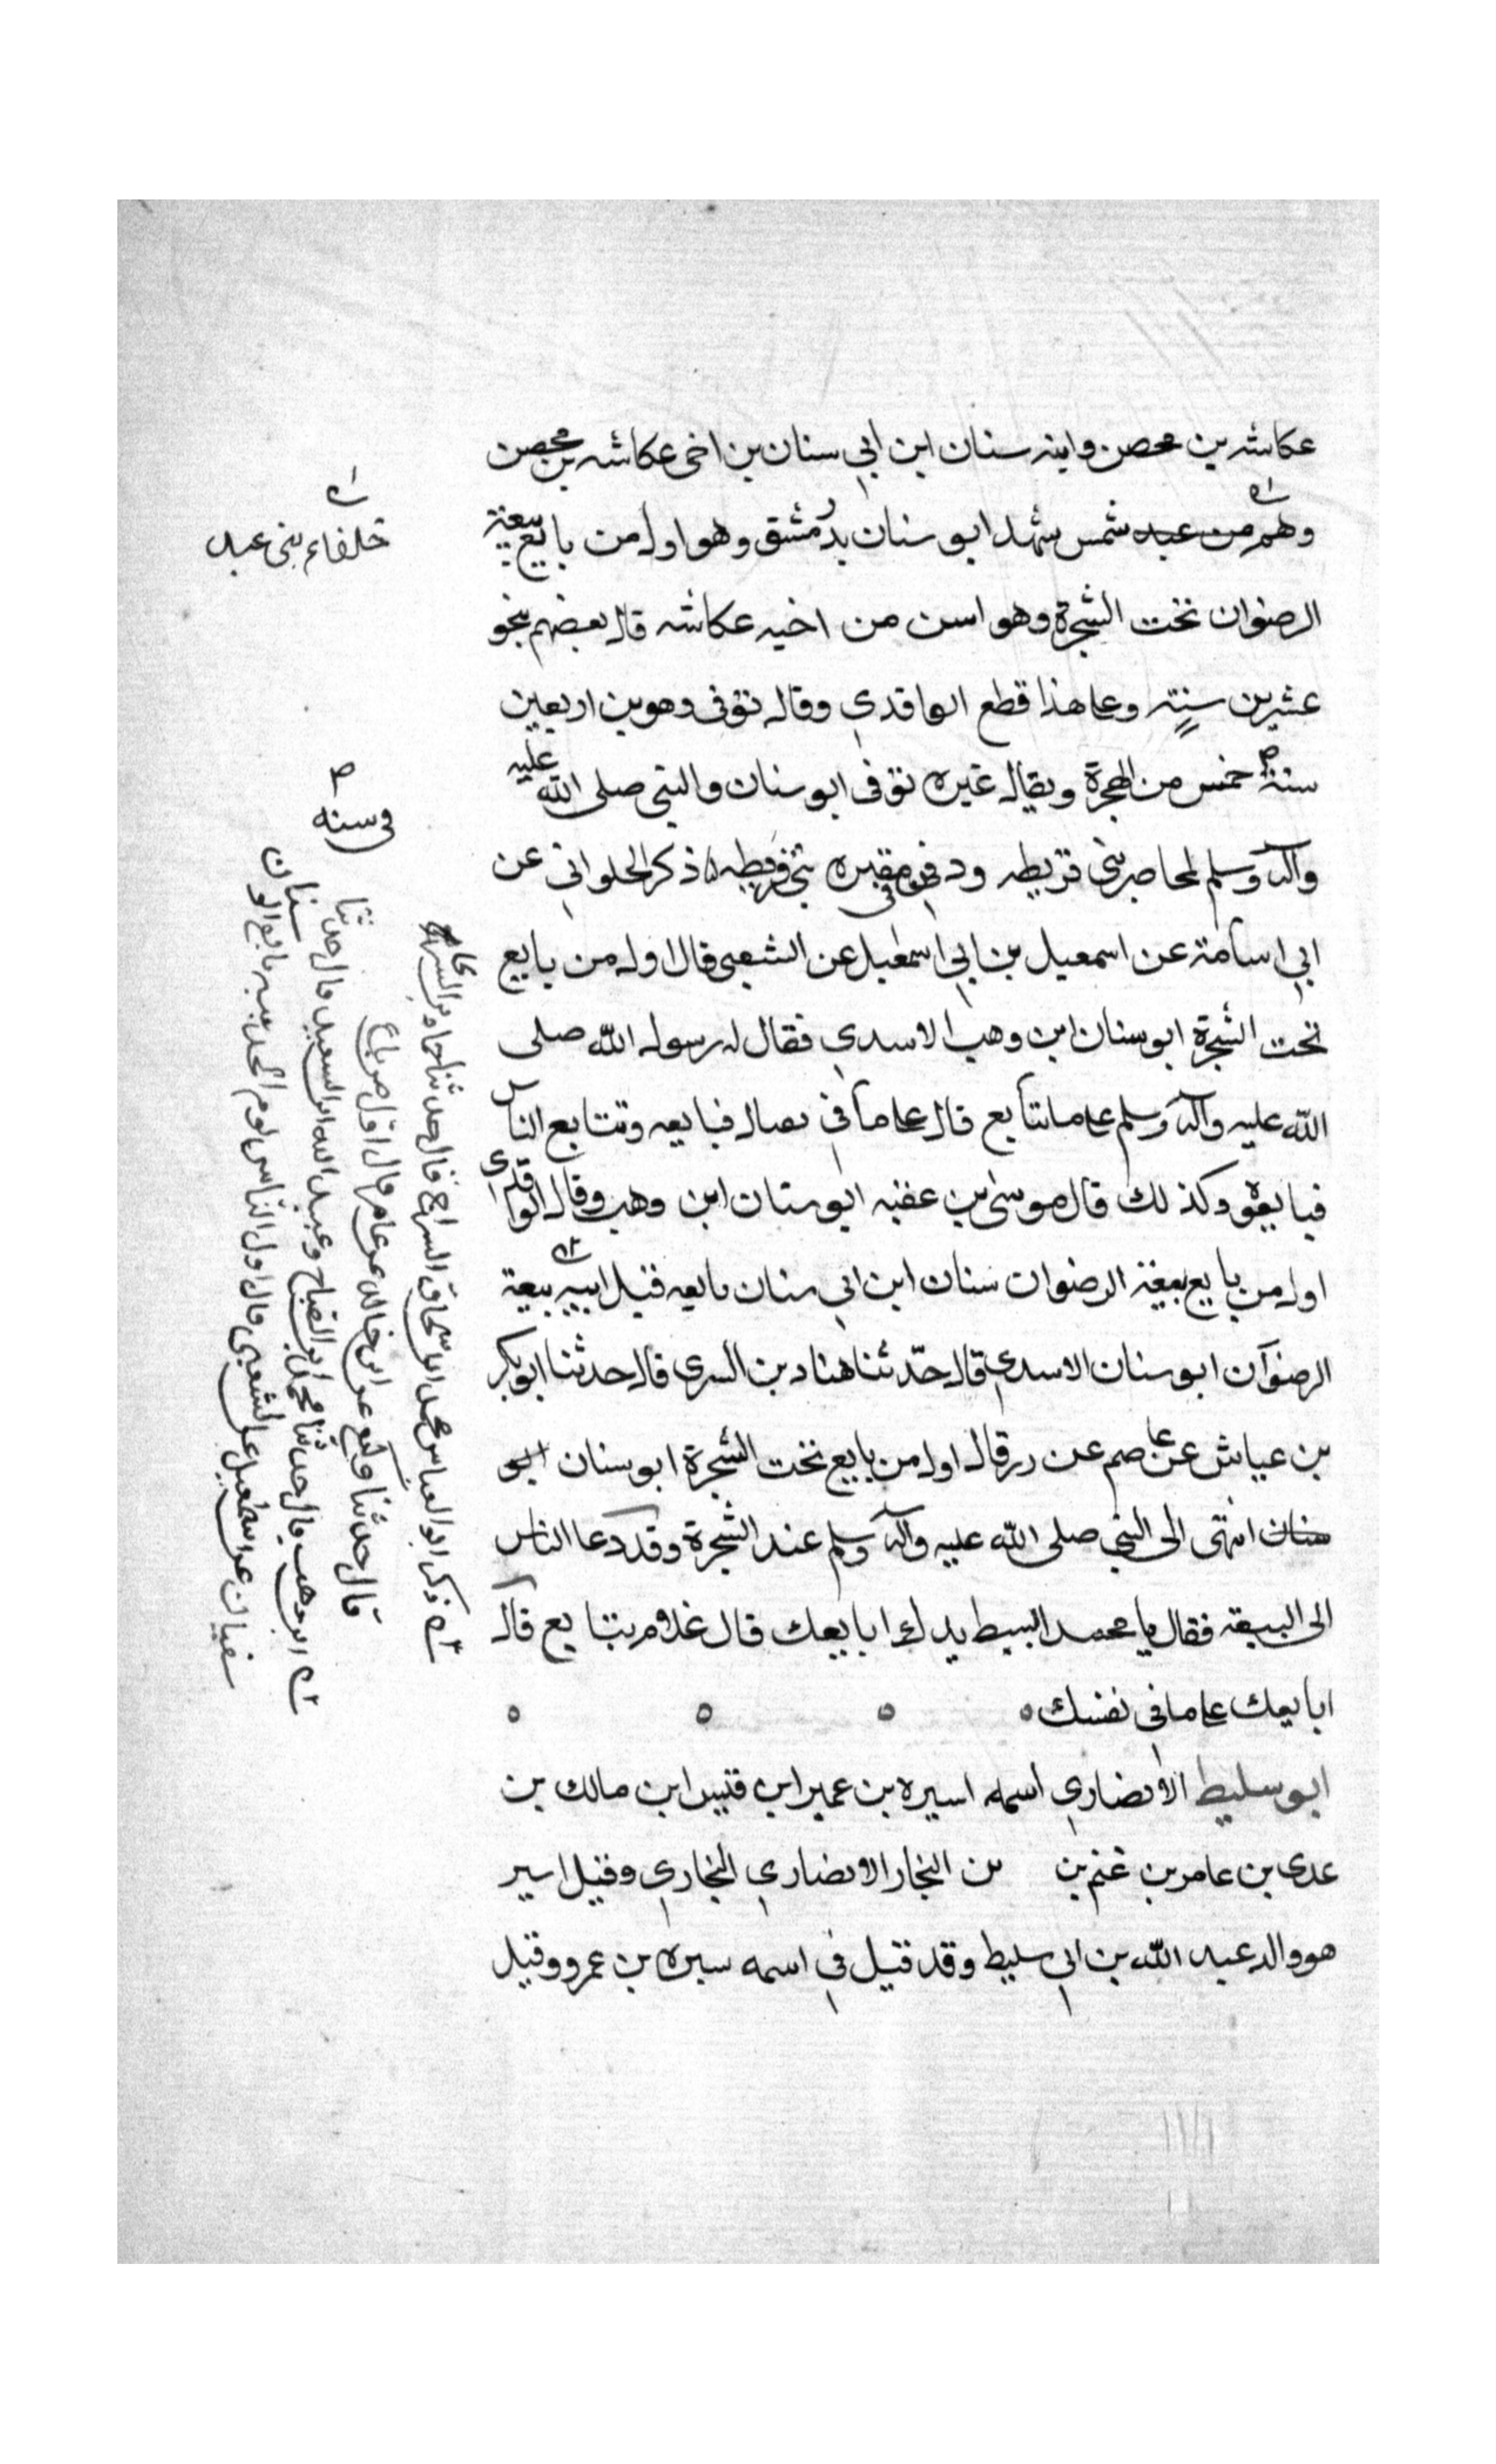 عكاشه بن محصن وابنه سنان ابن ابي سنان بن اخى عكاشه بن محصن
وهم من عبد شمس شهد ابو سنان بدر مشق وهو اول من بايع بيعة
الرضوان تحت الشجرة وهو اسن من اخيه عكاشه قال بعضهم بنحو
عشرين سنة وعلى هذا قطع الواقدي وقال توفى وهو بن اربعين
سنة خمس من الهجرة ويقال غيره توفى ابو سنان والنبي صلى الله عليه
وآله وسلم محاصر بنى قريظه ودفن فى مقبره بنى قريظه ذكر الحلواني عن
ابي اسامة عن اسمعيل بن ابي اسمعيل عن الشعبى قال اول من بايع
تحت الشجرة ابو سنان ابن وهب الاسدي فقال له رسول الله صلى
الله عليه وآله وسلم على ما تتابع قال على ما في فبايعه وتتابع الناس
فبايعوه وكذلك قال موسى بن عقبه ابو سنان ابن وهب وقال الواقدي
اول من بايع بيعة الرضوان سنان ابن ابي سنان بايعه قبل ابيه بيعة
الرضوان ابو سنان الاسدي قال حدثنا هناد بن السري قال حدثنا ابو بكر
بن عياش عن عاصم عن زر قال اول من بايع تحت الشجرة ابو سنان ابو
سنان انتهى الى النبي صلى الله عليه وآله وسلم عند الشجرة وقد دعا الناس
الى البيعة فقال يا محمد ابسط يدك ابايعك قال علام تبايع قال
ابايعك على ما فى نفسك
ابو سليط الانصاري اسمه اسيره بن عمير ابن قيس ابن مالك بن
عدى بن عامر بن غنم بن بن النجار الانصاري النجاري وقيل اسير
هو والد عبد الله بن ابي سليط وقد قيل في اسمه سبره بن عمرو وقيل
حلفاء بنى عبد
فى سنه
ذكر ابو العباس محمد بن اسحاق السراج قال حدثنا
قال حدثنا وكيع عن ابن خالد عن عامر قال اول من بايع
ابن وهب قال حدثنا محمد بن الصباح وعبيد الله بن السعيد قال حدثنا
سفيان عن اسمعيل عن الشعبى قال اول الناس
سنان